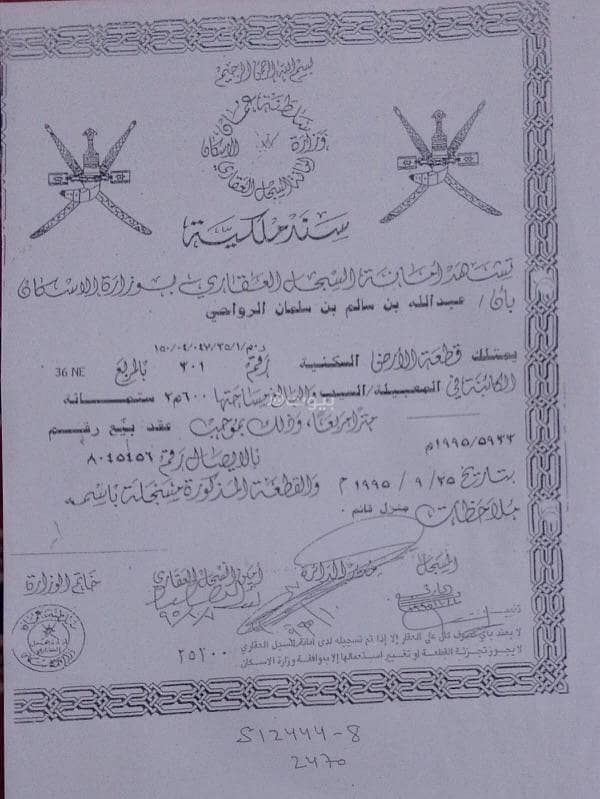 بسم الله الرحمن الرحيم
سلطنة عمان
وزارة الاسكان
امانة السجل العقاري
سند ملكية
تشهد امانة السجل العقاري بوزارة الاسكان
بأن / عبدالله بن سالم بن سلمان الرواحي
ر.م/١٥٠/٠٤/٠٤٧/٣٥/١
يمتلك قطعة الأرض السكنية رقم ٣٠١ بالمربع 36 NE
الكائنة في المعبيلة/السيب والبالغ مساحتها ٦٠٠م٢ ستمائة
مترا مربعا، وذلك بموجب عقد بيع رقم
١٩٩٥/٥٩٣٣م بالايصال رقم ٨٠٤٥٤٥٦
بتاريخ ٢٥ / ٩ / ١٩٩٥م والقطعة المذكورة مسجلة باسمه
ملاحظات منزل قائم .
المسجل مدير الدائرة أمين السجل العقاري خاتم الوزارة
تنبيه
لا يعتد بأي تصرف كان على العقار إلا إذا تم تسجيله لدى امانة السجل العقاري
لا يجوز تجزئة القطعة او تغيير استعمالها إلا بموافقة وزارة الاسكان
٢٥٢٠٠
S12444-8
2470
بيوت